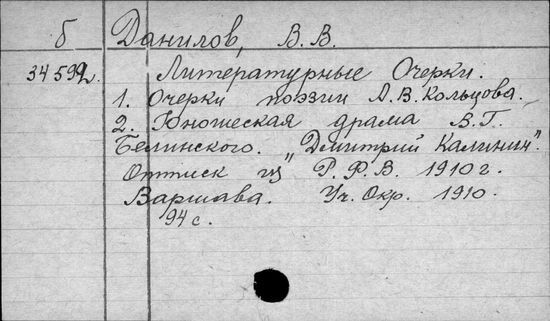 б Данилов, В. В.
34592. Литературные Очерки.
1. Очерки поэзии А. В. Кольцова.
2. Юношеская драма В. Г.
Белинского. "Дмитрий Калинин".
Оттиск из Р. Ф. В. 1910 г.
Варшава. Уч. Окр. 1910.
94 с.